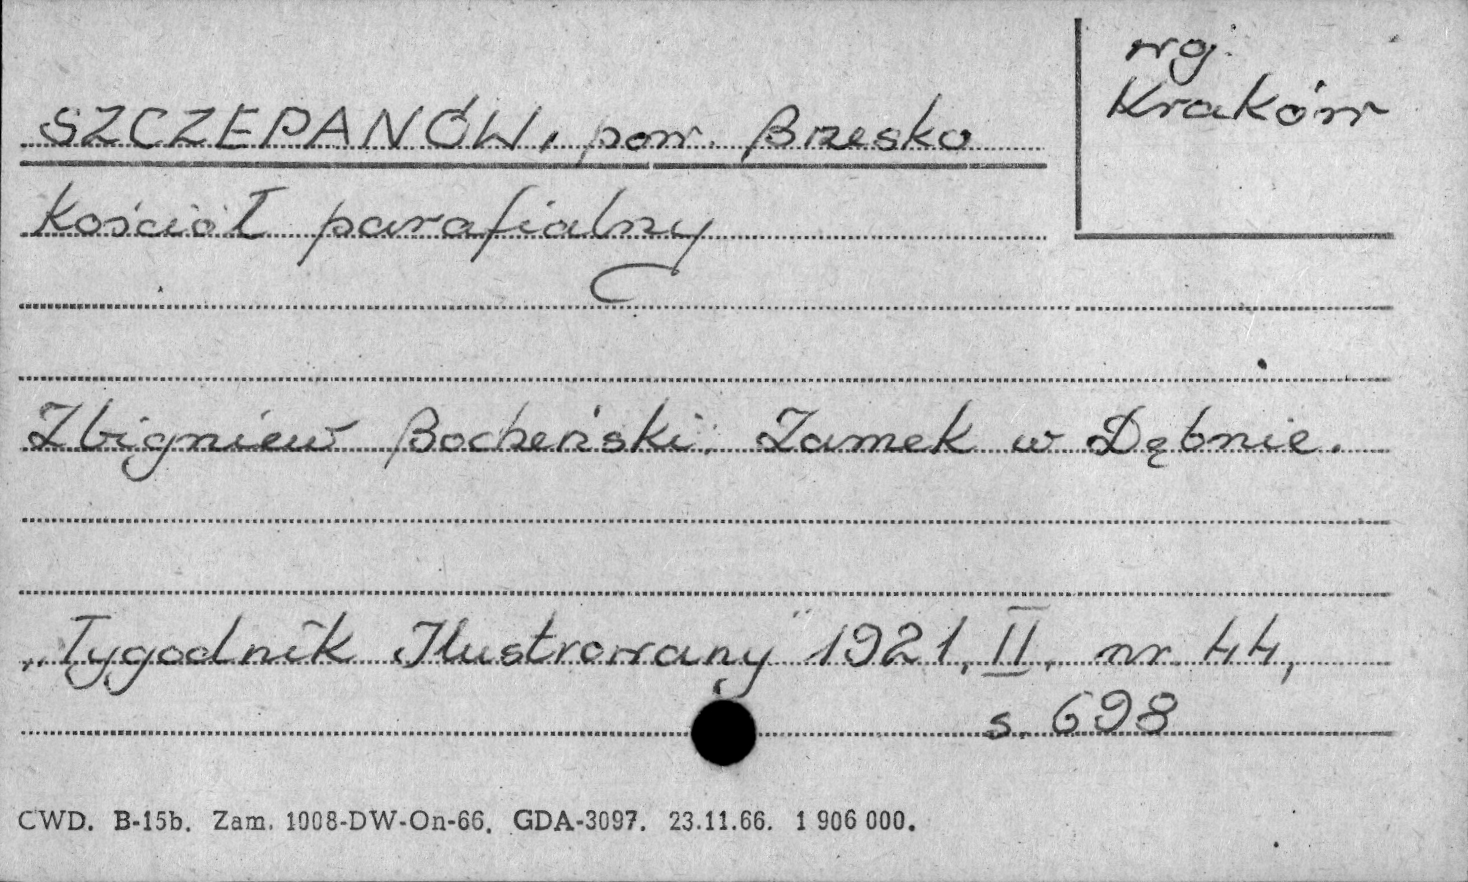 woj.
Kraków
SZCZEPANÓW, pow. Brzesko
kościół parafialny
Zbigniew Bocheński: Zamek w Dębnie.
„Tygodnik Ilustrowany" 1921, II, nr 44,
s. 698
CWD. B-15b. Zam. 1008-DW-On-66. GDA-3097. 23.11.66. 1 906 000.